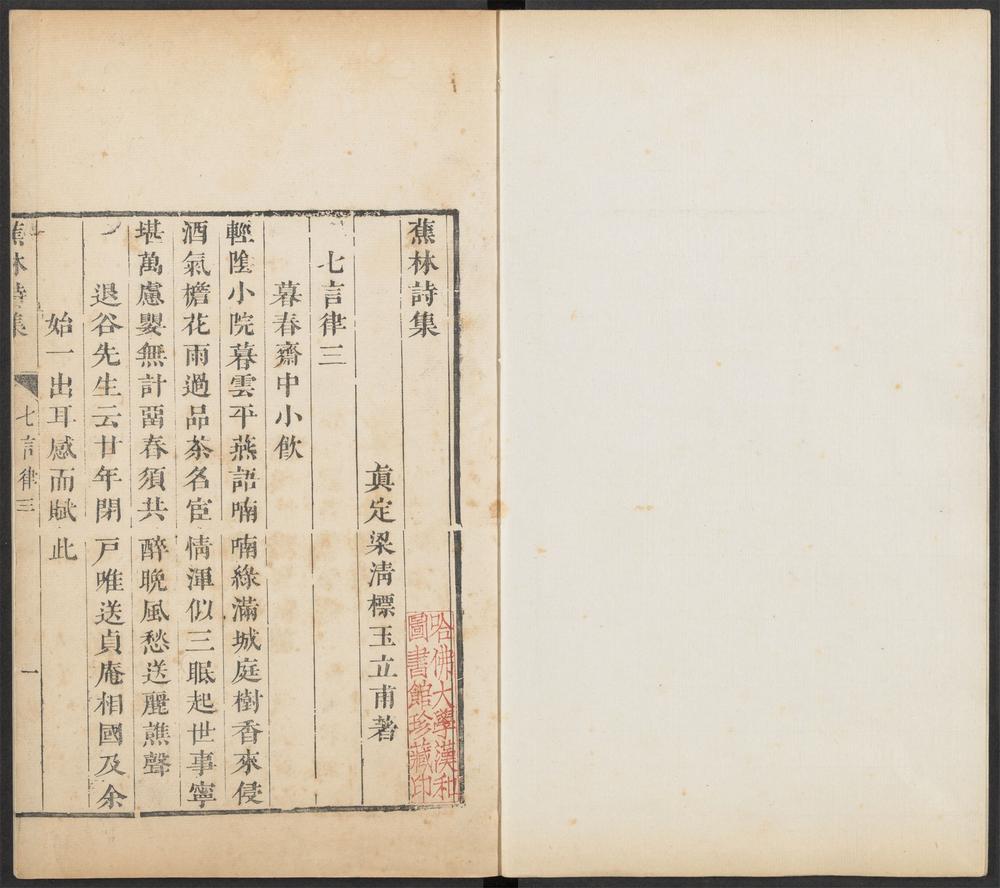 蕉林詩集
真定梁清標玉立甫著
七言律三
暮春齋中小飲
輕陰小院暮雲平燕語喃喃綠滿城庭樹香來侵
酒氣檐花雨過品茶名宦情渾似三眠起世事寧
堪萬慮嬰無計畱春須共醉晚風愁送麗譙聲
退谷先生云廿年閉戶唯送貞庵相國及余
始一出耳感而賦此
蕉林詩集
七言律三
一
哈佛大學漢和
圖書館珍藏印